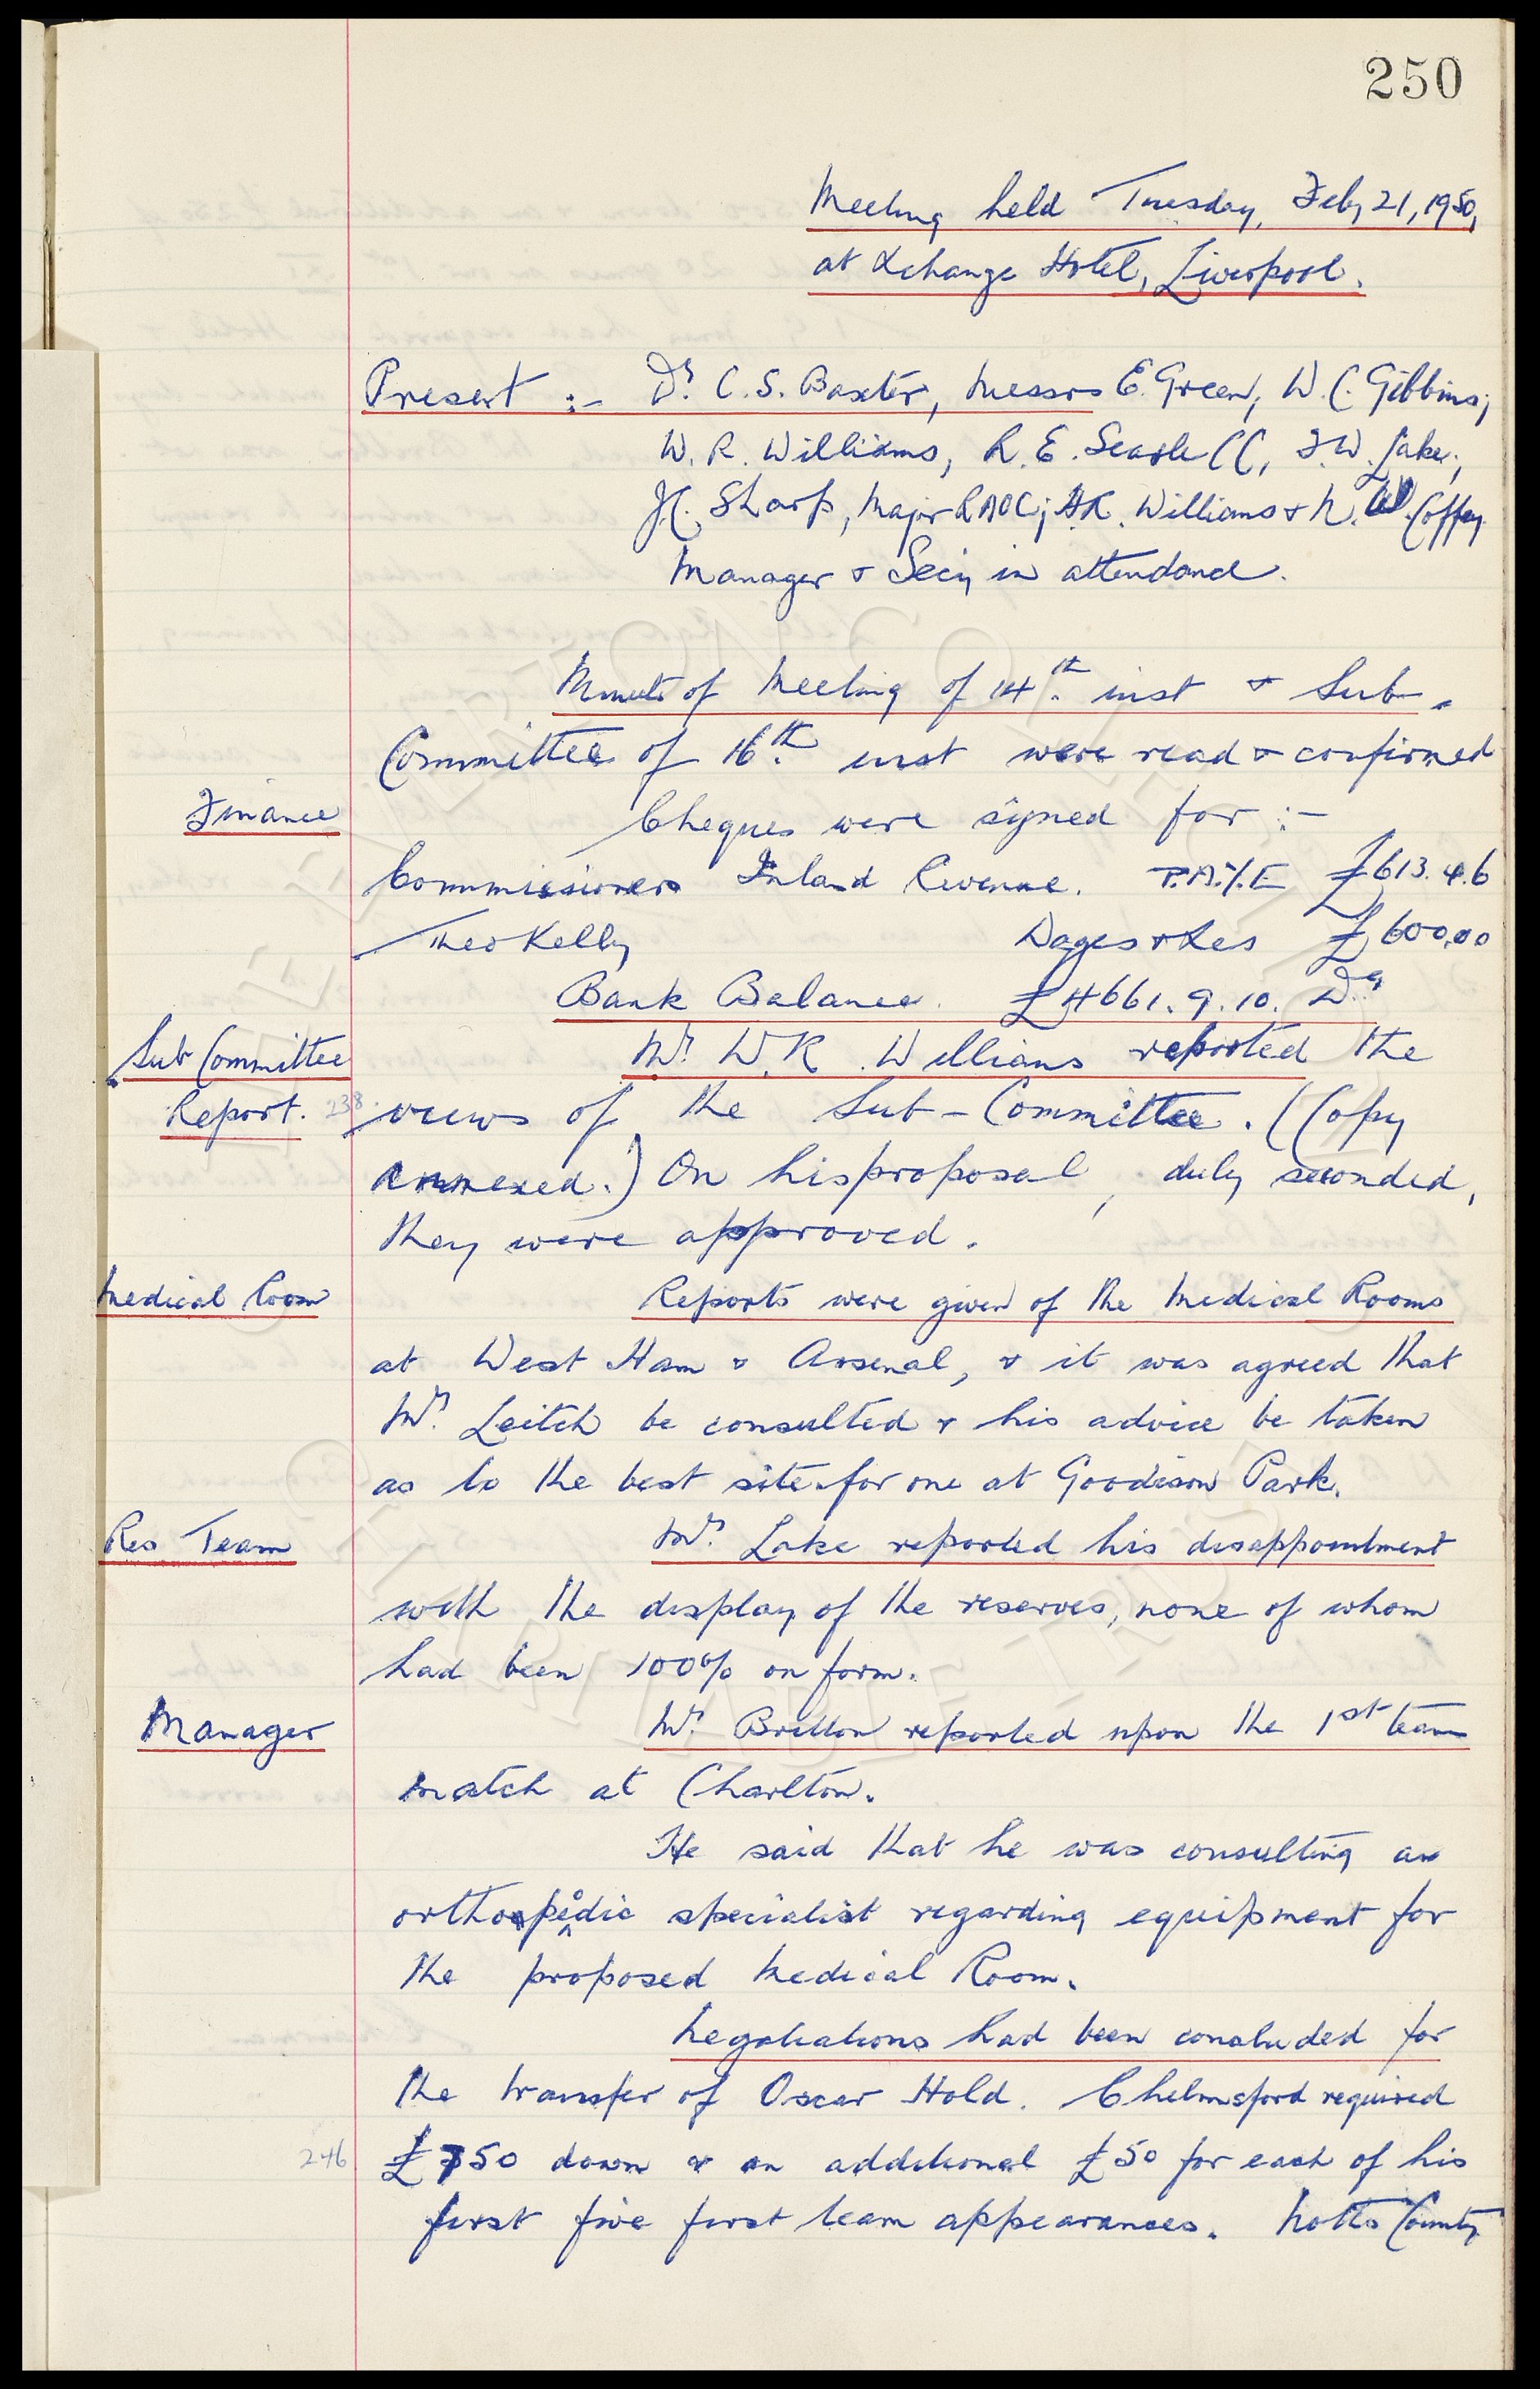 250
Meeting held Tuesday, Feby 21, 1950,
at Exchange Hotel, Liverpool.
Present :- Dr. C. S. Baxter, Messrs E. Green, W. C. Gibbins,
W. R. Williams, R. E. Searle CC, F. W. Lake,
J C. Sharp, Major RAOC; H R. Williams & N. W. Coffey
Manager & Secy in attendance.
Minutes of Meeting of 14th. inst & Sub-
Committee of 16th. inst were read & confirmed
Finance
Cheques were signed for :-
Commissioners Inland Revenue. P.A.Y.E £613.4.6
Theo Kelly Wages & Exes £600.00
Bank Balance. £4661.9.10. Dr
Sub Committee
Report. 238
Mr. W. R. Williams reported the
views of the Sub-Committee. (Copy
annexed.) On his proposal, duly seconded,
they were approved.
Medical Room
Reports were given of the Medical Rooms
at West Ham & Arsenal, & it was agreed that
Mr. Leitch be consulted & his advice be taken
as to the best site for one at Goodison Park.
Res Team
Mr. Lake reported his disappointment
with the display of the reserves, none of whom
had been 100% on form.
Manager
Mr. Britton reported upon the 1st team
match at Charlton.
He said that he was consulting an
orthopædic specialist regarding equipment for
the proposed Medical Room.
Negotiations had been concluded for
the transfer of Oscar Hold. Chelmsford required
246
£750 down & an additional £50 for each of his
first five first team appearances. Notts County